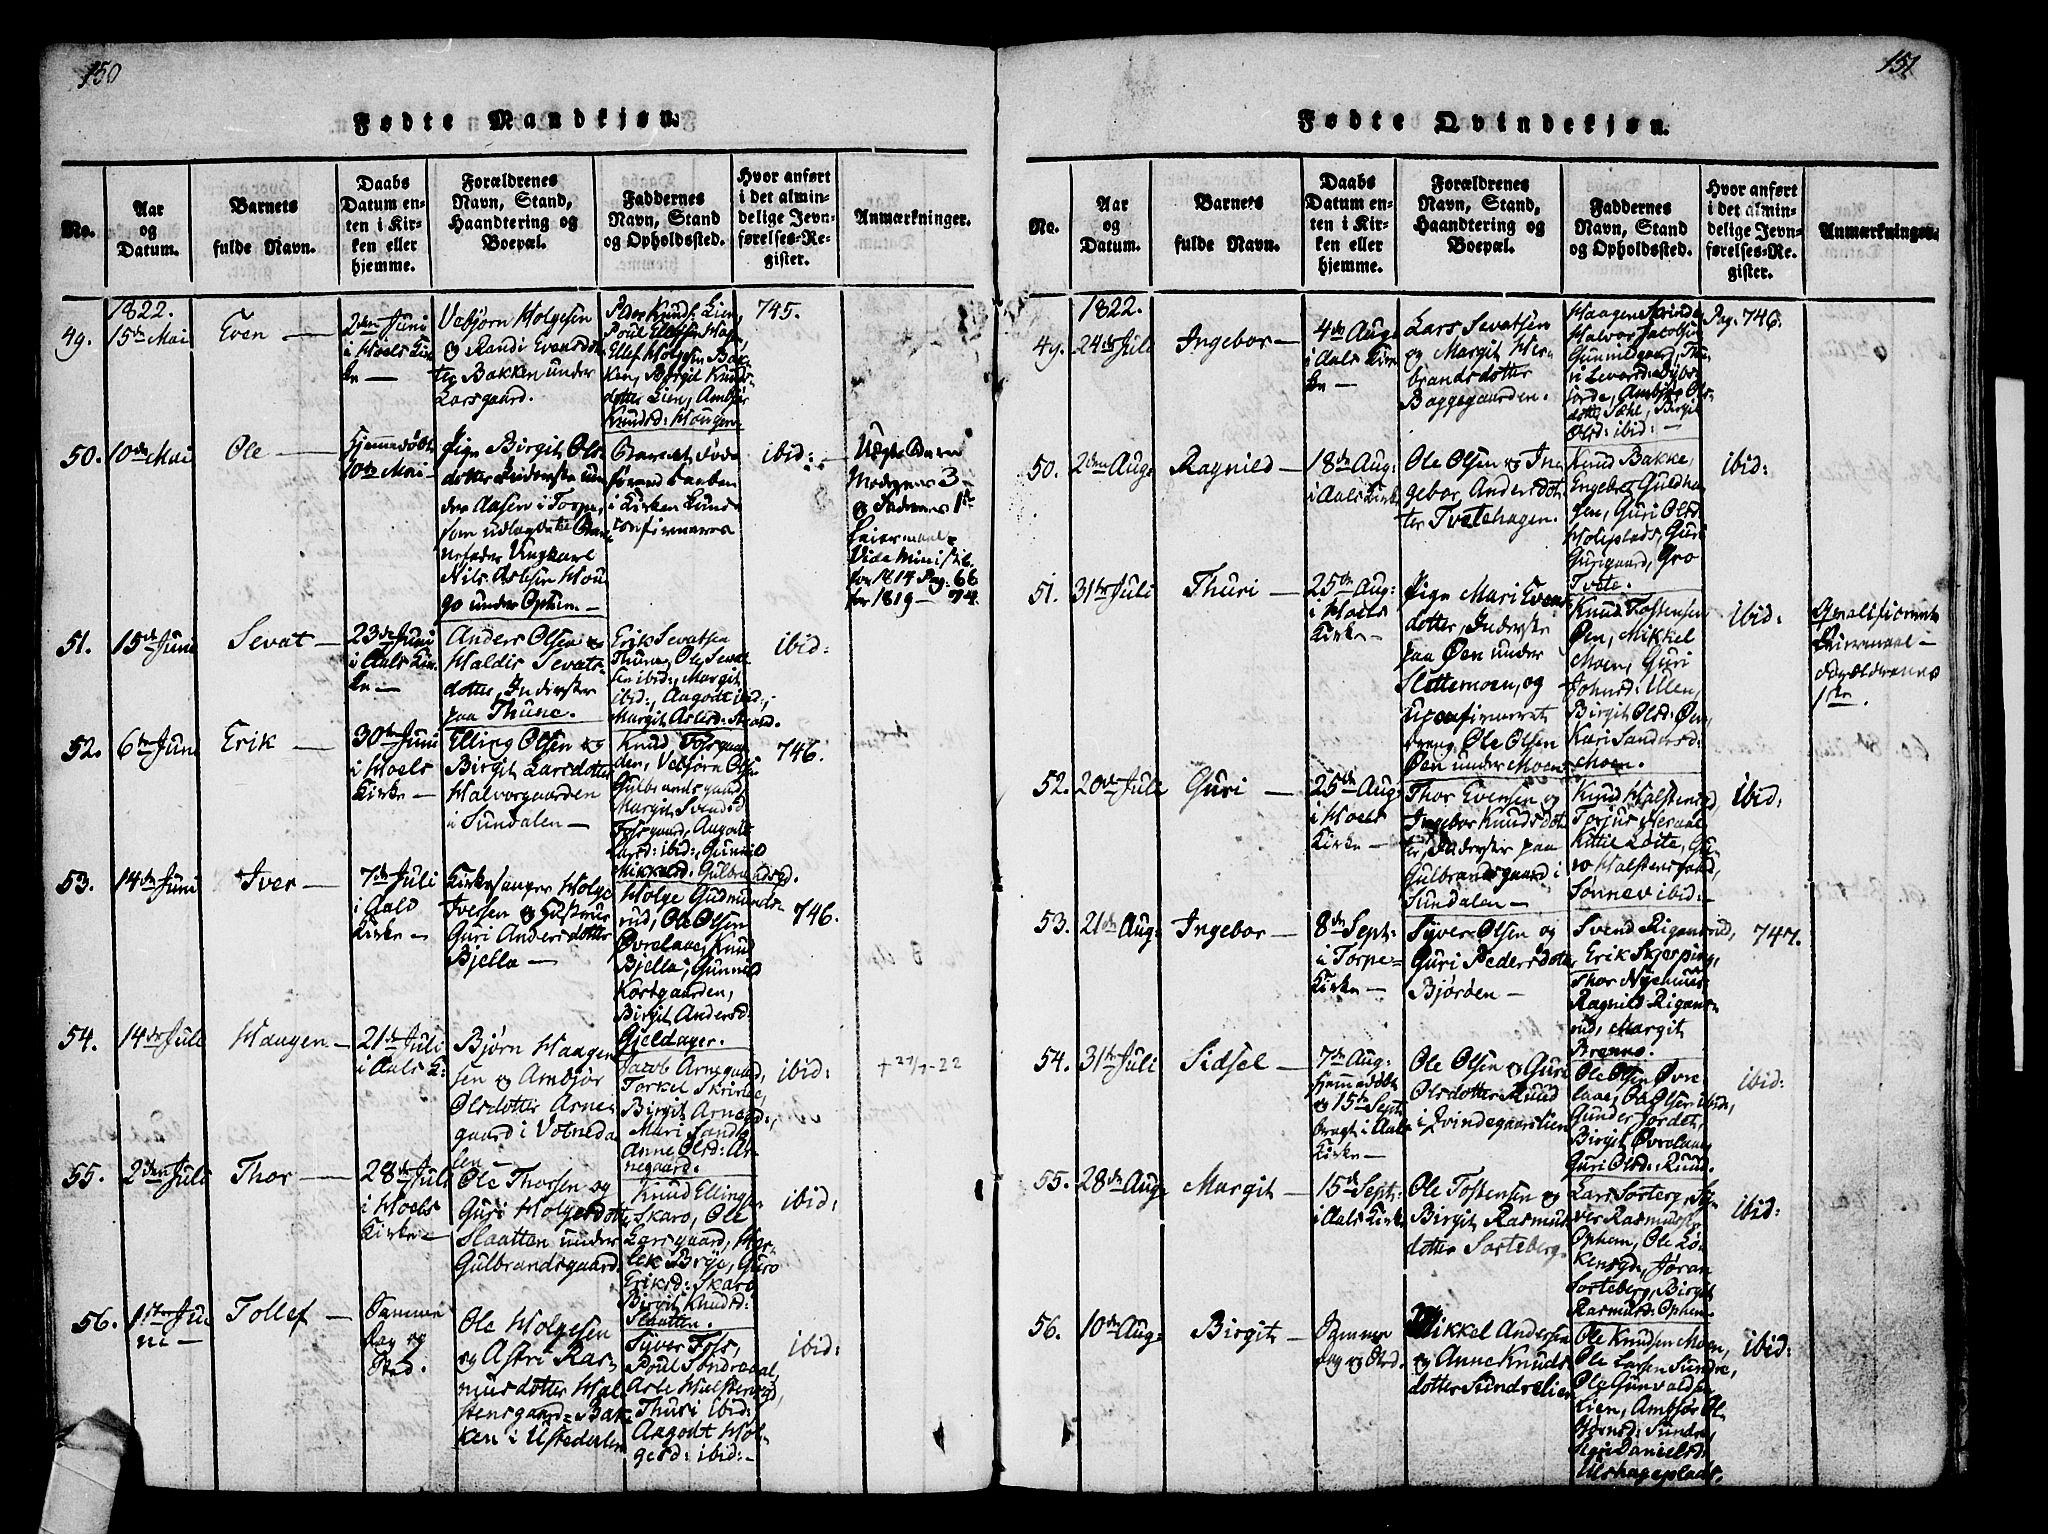 150
Fødte Mandkjøn.
No.
Aar
og
Datum.
Barnets
fulde Navn.
Daabs
Datum en-
ten i Kir-
ken eller
hjemme.
Forældrenes
Navn, Stand,
Haandtering og
Boepæl.
Faddernes
Navn, Stand
og Opholdssted.
Hvor anført
i det almin-
delige Jevn-
førelses-Re-
gister.
Anmærkninger.
1822.
49.
15de Mai
Even
2den Juni
i Hoels Kir-
ke
Vebjørn Holgesen
og Randi Evensdot-
ter Bakken under
Larsgaard.
Peder Knuds. Lien,
Poul Ellefsen Hag
Ellef Holgesen Bak-
ken, Birgit Knuds-
dotter Lien, Ambjør
Knudsd: Haugen
745.
50.
10de Mai
Ole
Hjemmedøbt
10de Mai
Pige Birgit Ols-
dotter Inderste un-
der Aasen i Torpe,
som udlagde til Bar-
nefader Ungkarl
Nils Astesen Hou-
go under Ophem
Barnet døde
førend Daaben
i Kirken kunde
confirmeres
ibid:
Uægte Barn
Moderens 3
og Faderens 1ste
Leiermaal
Vide Minist: b.
for 1817 Pag: 66
for 1819 74.
51.
15de Juni
Sevat
23de Juni
i Aals Kir-
ke
Anders Olsen og
Haldis Sevats-
dotter, Inderster
paa Thune.
Erik Sevatsen
Thune, Ole Sevat-
sen ibid:, Margit
ibid:, Aagodt ibid;
Margit Aslesd:
ibid:
52.
6te Juni
Erik
30te Juni
i Hoels
Kirke
Elling Olsen og
Birgit Larsdotter
Halvorgaarden
i Sundalen
Knud Fossgaar-
den, Vebjørn Olsen
Gulbrandsgaard,
Margit Svendsd
Fossgaard, Aagodt
Larsd: ibid:, Gunnild
Mikkelsd: Gulbrandsgd.
746.
53.
14de Juni
Iver
7de Juli
i Aals
Kirke
Kirkesanger Holge
Iversen og Hustrue
Guri Andersdotter
Bjella
Holge Gudmunds-
rud, Ole Olsen
Øvrelaae, Knud
Bjella, Gunnild
Kortgaarden,
Birgit Andersd:
Gjeldager.
746.
54.
14de Juli
Haagen
21de Juli
i Aals K:
Bjørn Haagen-
sen og Ambjør
Olsdotter Arne-
gaard i Votneda-
len
Jacob Arnegaard,
Torkel Skrinde,
Birgit Arnegd:,
Mari Sando
Anne Olsd: Ar-
negaard.
ibid:
+ 27/7-22
55.
2den Juli
Thor
28de Juli
i Hoels
Kirke
Ole Thorsen og
Guri Holgesdotter
Slaatten under
Gulbrandsgaard.
Knud Elling-
Skaro, Ole
Larsgaard, Has-
lek Brye, Guro
Eriksd: Skaro
Birgit Knudsd:
Slaatten.
ibid:
56.
1ste Ju-
ni
Tollef
Samme
Dag og
Sted.
Ole Holgesen
og Astri Ras-
musdotter Hal-
stensgaard=Bak-
ken i Ustedalen
Syver Foss,
Poul Sondredal,
Asle Halstensgd,
Thuri ibid:
Aagodt Hol-
gesd: ibid:
ibid:
151
Fødte Qvindekjøn.
No.
Aar
og
Datum.
Barnets
fulde Navn.
Daabs
Datum en-
ten i Kir-
ken eller
hjemme.
Forældrenes
Navn, Stand,
Haandtering og
Boepæl.
Faddernes
Navn, Stand
og Opholdssted.
Hvor anført
i det almin-
delige Jevn-
førelses-Re-
gister.
Anmærkninger.
1822.
49.
24de Juli
Ingebor
4de Aug:
i Aals Kir-
ke
Lars Sevatsen
og Margit Her-
brandsdotter
Baggegaarden.
Haagen Skrinde
Halvor Jacobsen
Gunnildgaard, Thu-
ri Leversd:
Ambjør Ols-
dotter Sæhl, Birgit
Olsd: ibid:
Pag: 746.
50.
2den Aug:
Ragnild
18de Aug:
i Aals Kirke
Ole Olsen og In-
gebor Andersdot-
ter Tvetehagen.
Knud Bakke,
Engebret Guldha-
gen, Guri Olsd:
Holeplads, Guri
Gurigaard, Gro
Tvete.
ibid:
51.
31te Juli
Thuri
25de Aug:
i Hoels
Kirke
Pige Mari Evens-
dotter, Inderste
paa Øen under
Slettemoen, og
uconfirmeret
dreng Ole Olsen
Øen under Moen
Knud Tostensen
Øen, Mikkel
Moen, Guri
Johnsd: Ulen,
Birgit Olsd: Øen,
Kari Sandersd:
Moen.
ibid:
Leiermaal
Forældrenes
1ste.
52.
20de Juli
Guri
25de Aug:
i Hoels
Kirke
Thor Evensen og
Ingebor Knudsdot-
ter, Inderster paa
Gulbrandsgaard i
Sundalen
Knud Halstensgd,
Torjus
Kittil Løite, Gu-
ro Halstensgaard,
Sønnev ibid:
ibid:
53.
21de Aug:
Ingebor
8de Sept:
i Torpe-
Kirke
Syver Olsen og
Guri Pedersdotter
Bjørøen
Svend Rigansrud,
Erik Skjerping,
Thor Nyehuus
Ragnild Rigans-
rud, Margit
Brenno.
747.
54.
31te Juli
Sidsel
7de Aug:
hjemmedøbt
og 15de Sept:
bragt i Aals
Kirke
Ole Olsen og Guri
Olsdotter Ruud
i Qvindegaardslien
Ole Olsen Øvre-
laae, Ole Olsen ibid:,
Gunder Jordet,
Birgit Øvrelaae
Guri Olsd: Ruud.
ibid:
55.
28de Aug:
Margit
15de Sept:
i Aals Kirke
Ole Tostensen og
Birgit Rasmus-
dotter Sorteberg.
Lars Sorteberg, Sy-
ver Rasmussen
Ophem, Ole Lø-
kensgd, Jøran
Sorteberg, Birgit
Rasmusd: Ophem.
ibid:
56.
10de Aug:
Birgit
Samme
Dag og Sted.
Mikkel Andersen
og Anne Knuds-
dotter Sundrelien
Ole Knudsen Moen,
Ole Larsen Sundre,
Ole Gunvaldsen
Lien, Ambjør Ol-
Sundre,
Danielsd:
Ulshageplads.
ibid: